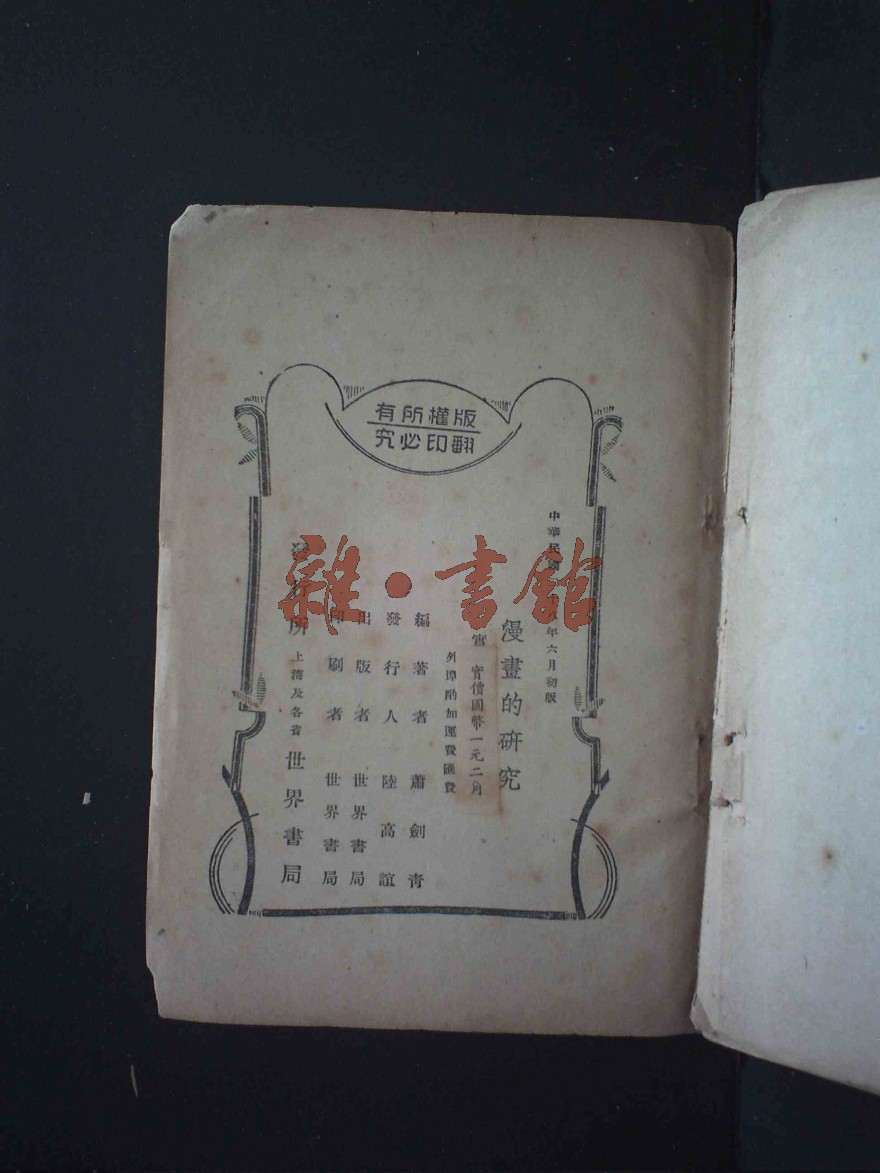 版權所有
翻印必究
中華民國年六月初版
漫畫的研究
實 實價國幣一元二角
外埠酌加運費匯費
編著者 蕭劍青
發行人 陸高誼
出版者 世界書局
印刷者 世界書局
發行所 上海及各省 世界書局
雜·書館